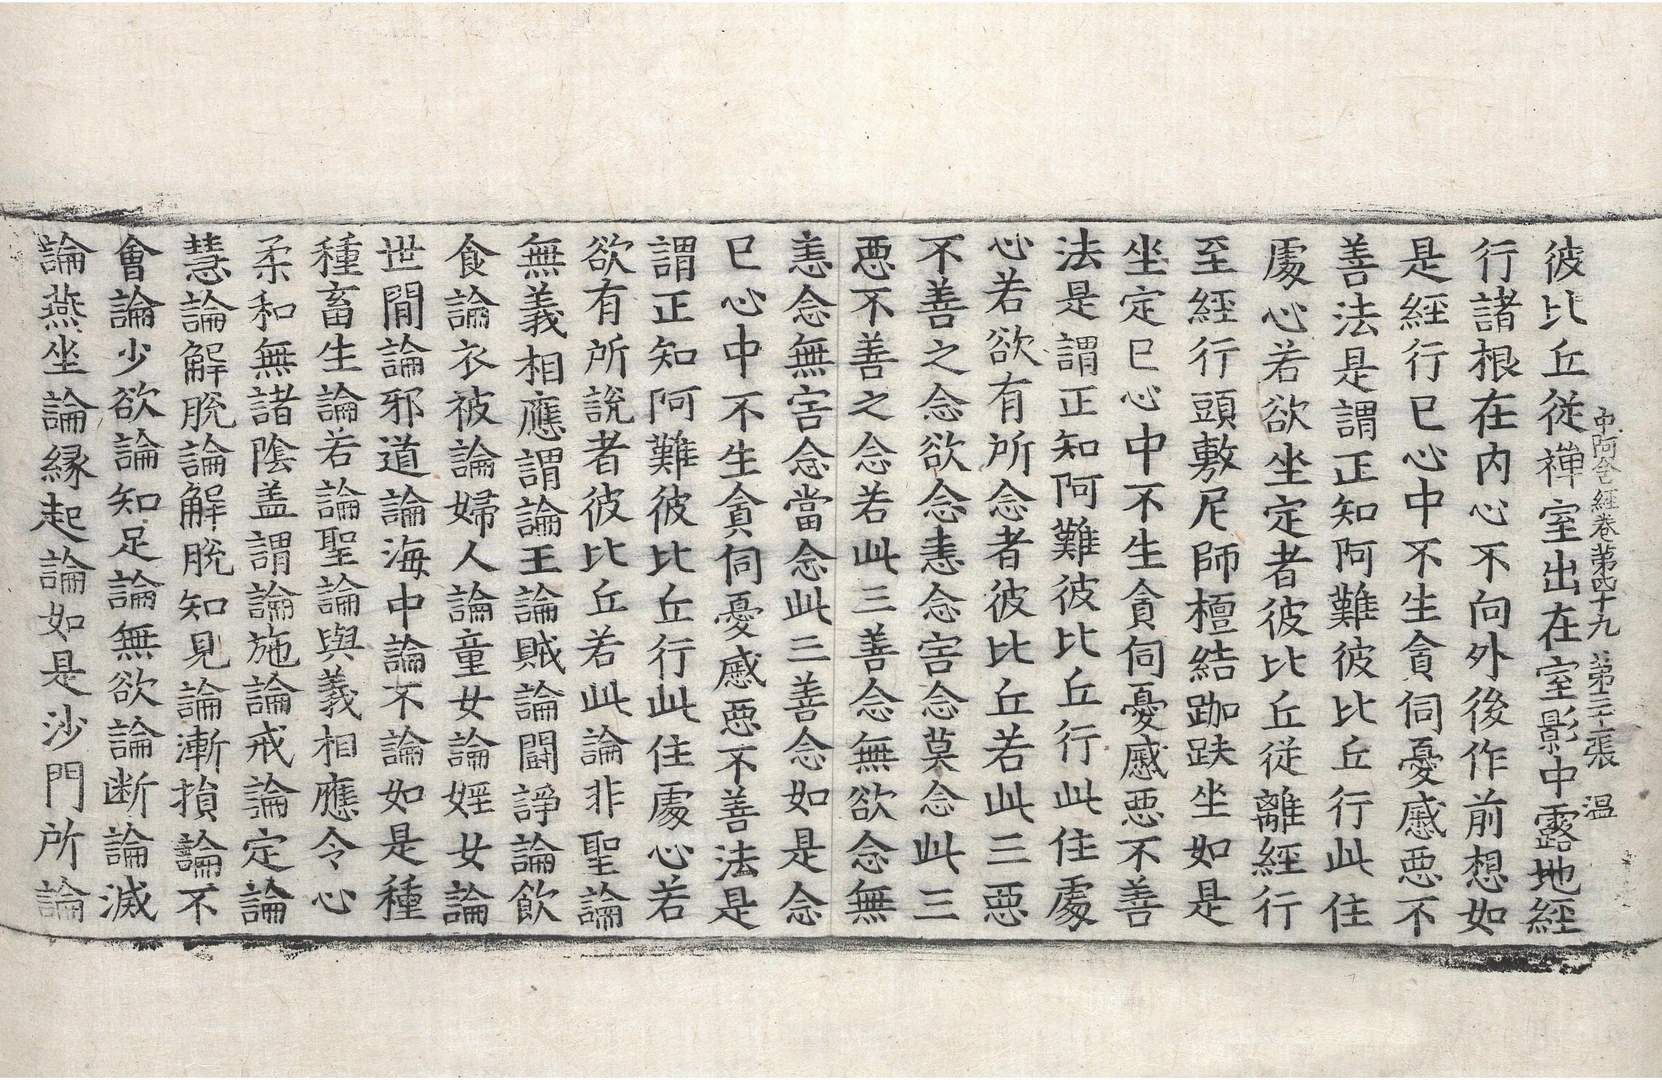 中阿含經卷第四十九 第張 温
彼比丘従禪室出在室影中露地經
行諸根在内心不向外後作前想如
是經行已心中不生貪伺憂慼惡不
善法是謂正知阿難彼比丘行此住
處心若欲坐定者彼比丘従離經行
至經行頭敷尼師檀結跏趺坐如是
坐定已心中不生貪伺憂慼惡不善
法是謂正知阿難彼比丘行此住處
心若欲有所念者彼比丘若此三惡
不善之念欲念恚念害念莫念此三
惡不善之念若此三善念無欲念無
恚念無害念當念此三善念如是念
已心中不生貪伺憂慼惡不善法是
謂正知阿難彼比丘行此住處心若
欲有所說者彼比丘若此論非聖論
無義相應謂論王論賊論鬪諍論飲
食論衣被論婦人論童女論婬女論
世間論邪道論海中論不論如是種
種畜生論若論聖論與義相應令心
柔和無諸陰盖謂論施論戒論定論
慧論解脫論解脫知見論漸損論不
會論少欲論知足論無欲論断論滅
論燕坐論縁起論如是沙門所論